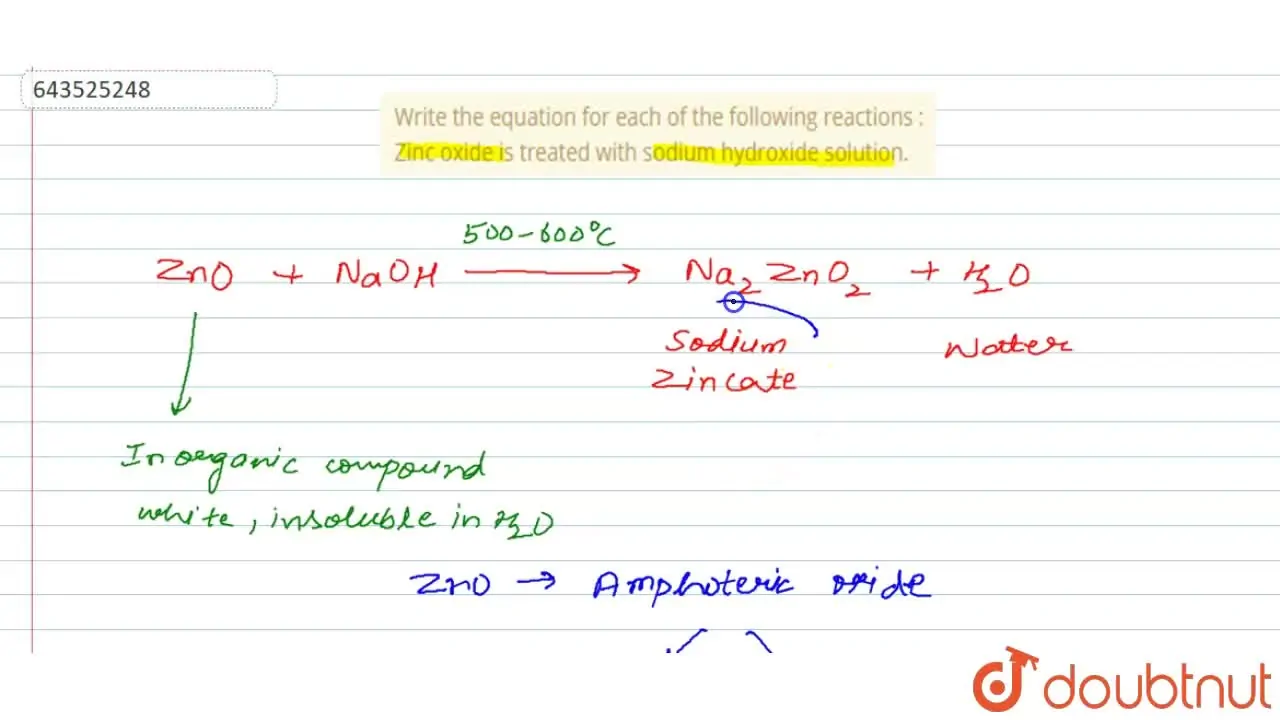 643525248
Write the equation for each of the following reactions :
Zinc oxide is treated with sodium hydroxide solution.
500-600°C
ZnO + NaOH → Na₂ZnO₂ + H₂O
Sodium Zincate
Water
Inorganic compound
white, insoluble in H₂O
ZnO → Amphoteric oxide
doubtnut